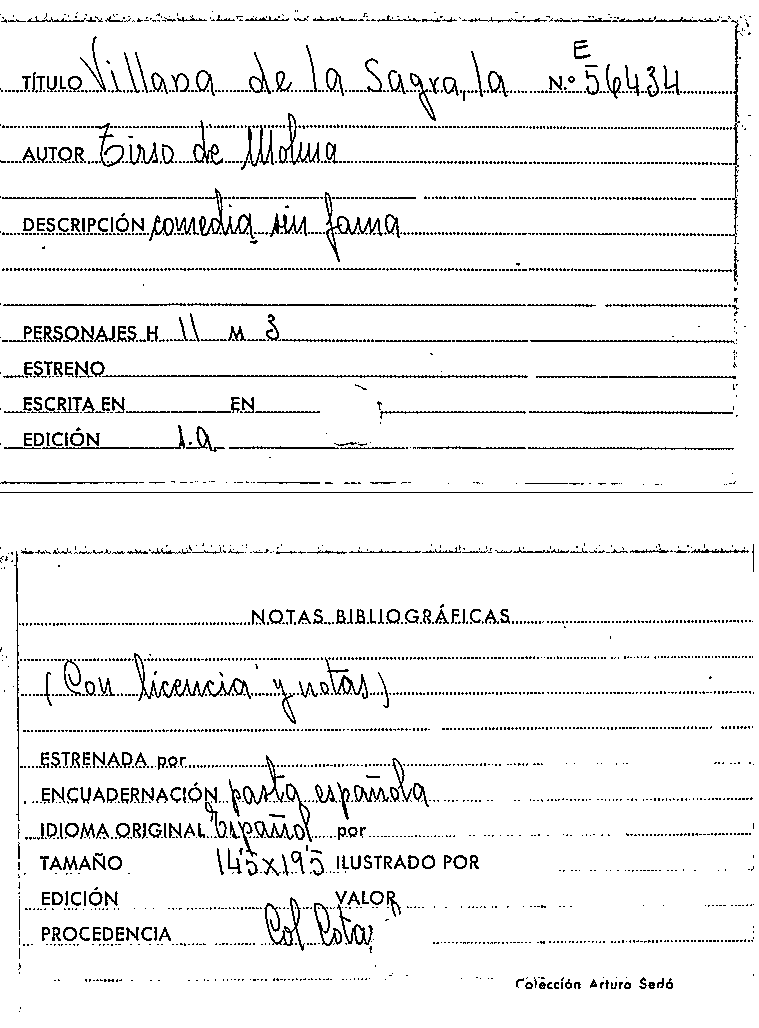 E
TÍTULO Villana de la Sagra, la N.º 56434
AUTOR Tirso de Molina
DESCRIPCIÓN comedia sin fama
PERSONAJES H 11 M 3
ESTRENO
ESCRITA EN EN
EDICIÓN 1.a
NOTAS BIBLIOGRÁFICAS
(Con licencia y notas)
ESTRENADA por
ENCUADERNACIÓN pasta española
IDIOMA ORIGINAL Español por
TAMAÑO 14'5x19'5 ILUSTRADO POR
EDICIÓN VALOR
PROCEDENCIA Col Cota
Colección Arturo Sedó